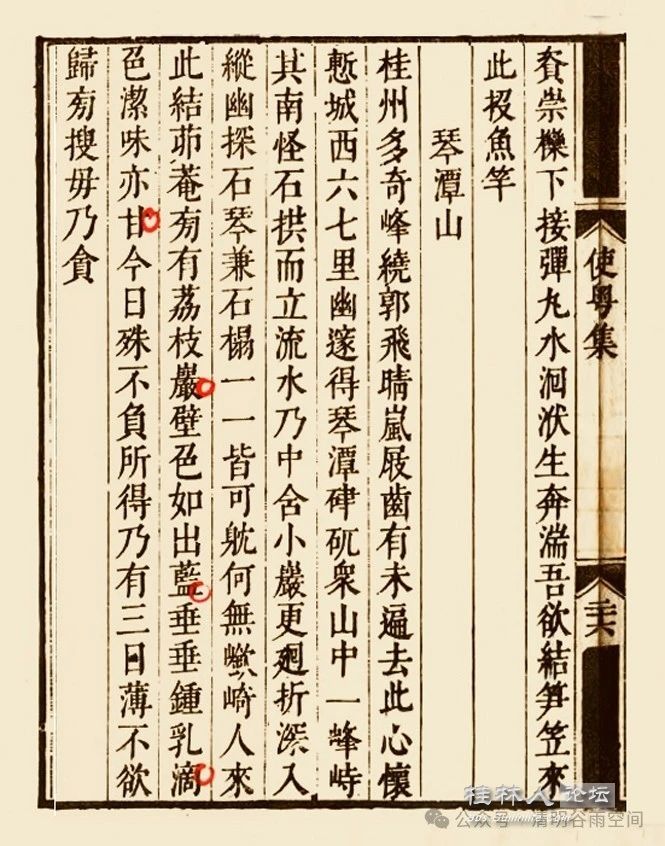 使粵集
崇櫟下接彈丸水洄洑生奔湍吾欲結笋笠來
此投魚竿
琴潭山
桂州多奇峰繞郭飛晴嵐屐齒有未遍去此心懷
慙城西六七里幽邃得琴潭硉矹衆山中一峰峙
其南怪石拱而立流水乃中含小巖更廻折深入
縱幽探石琴兼石榻一一皆可躭何無嶔崎人來
此結茆菴旁有荔枝巖壁色如出藍垂垂鍾乳滴
色潔味亦甘今日殊不負所得乃有三日薄不欲
歸旁搜毋乃貪
桂林人论坛
公众号 清明谷雨空间